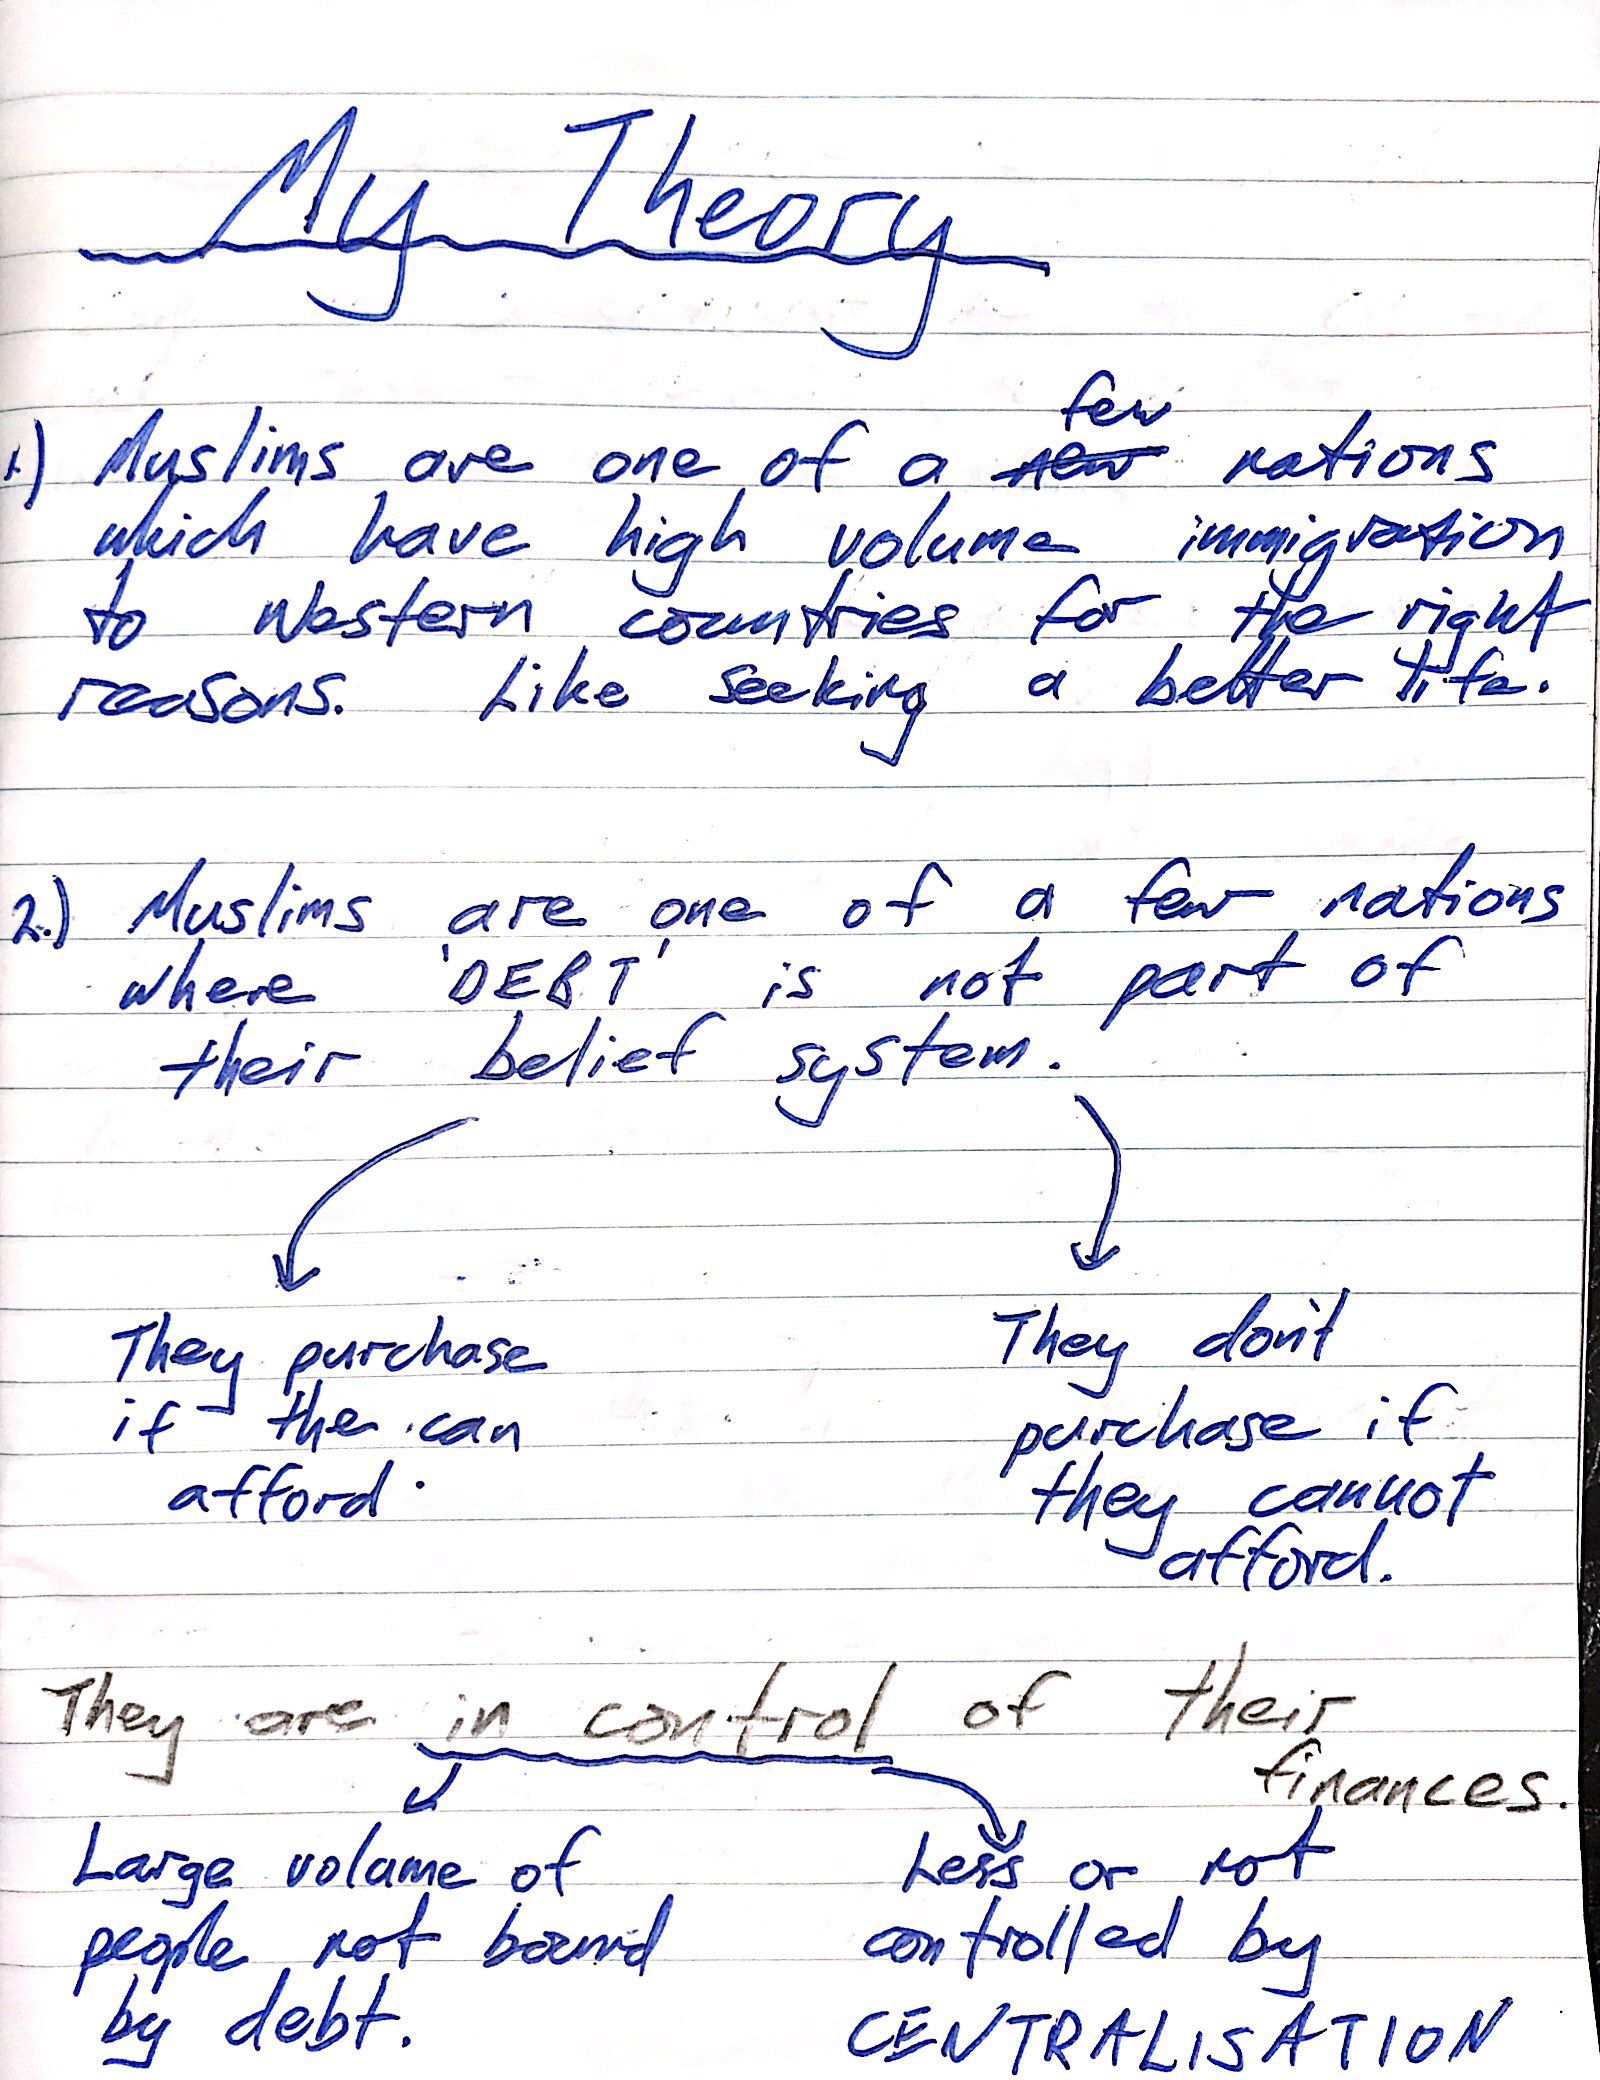 My Theory
1.) Muslims are one of a few new nations
which have high volume immigration
to Western countries for the right
reasons. Like seeking a better life.
2.) Muslims are one of a few nations
where 'DEBT' is not part of
their belief system.
They purchase
if the can
afford.
They don't
purchase if
they cannot
afford.
They are in control of their
finances.
Large volume of
people not bound
by debt.
Less or not
controlled by
CENTRALISATION